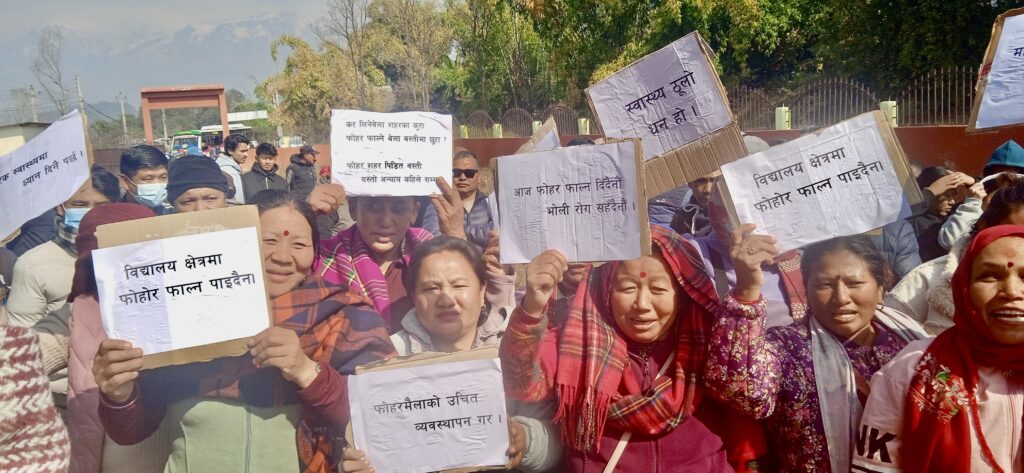 स्वास्थ्यमा
ध्यान दिनै पर्छ।
विद्यालय क्षेत्रमा
फोहोर फाल्न पाइदैन।
कर लिनेबेला शहरका कुरा
फोहर फाल्ने बेला बस्तीमा छुरा ?
फोहर शहर पिडित बस्ती
यस्तो अन्याय कहिले सम्म
आज फोहर फाल्न दिँदैनौं
भोली रोग सहँदैनौं ।
स्वास्थ्य ठूलो
धन हो ।
विद्यालय क्षेत्रमा
फोहोर फाल्न पाइदैन।
फोहरमैलाको उचित
व्यवस्थापन गर ।
NK